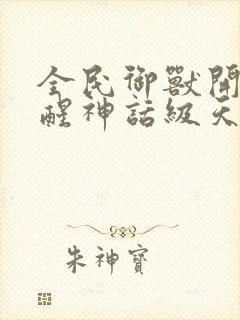 全民御獸開
醒神話級天
朱神寶